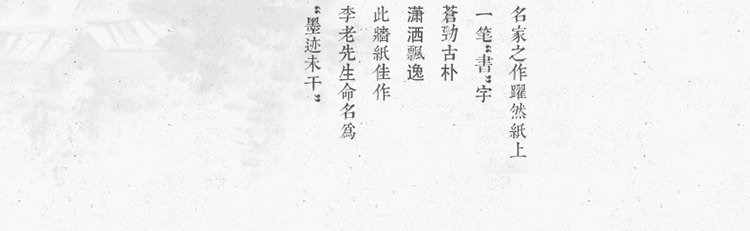 名家之作躍然紙上
一笔“書”字
蒼勁古朴
潇洒飄逸
此牆紙佳作
李老先生命名爲
“墨迹未干”